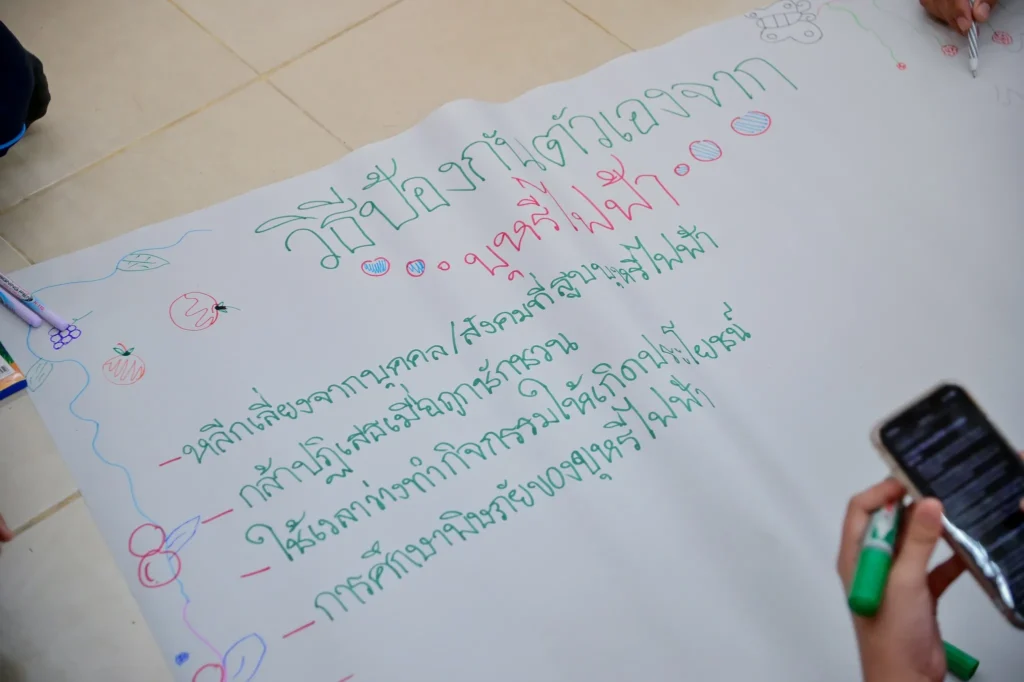 วิธีป้องกันตัวเองจาก
บุหรี่ไฟฟ้า
- หลีกเลี่ยงจากบุคคล/สังคมที่สูบบุหรี่ไฟฟ้า
- กล้าปฏิเสธเมื่อถูกชักชวน
- ใช้เวลาว่างทำกิจกรรมให้เกิดประโยชน์
- การศึกษาพิษภัยของบุหรี่ไฟฟ้า